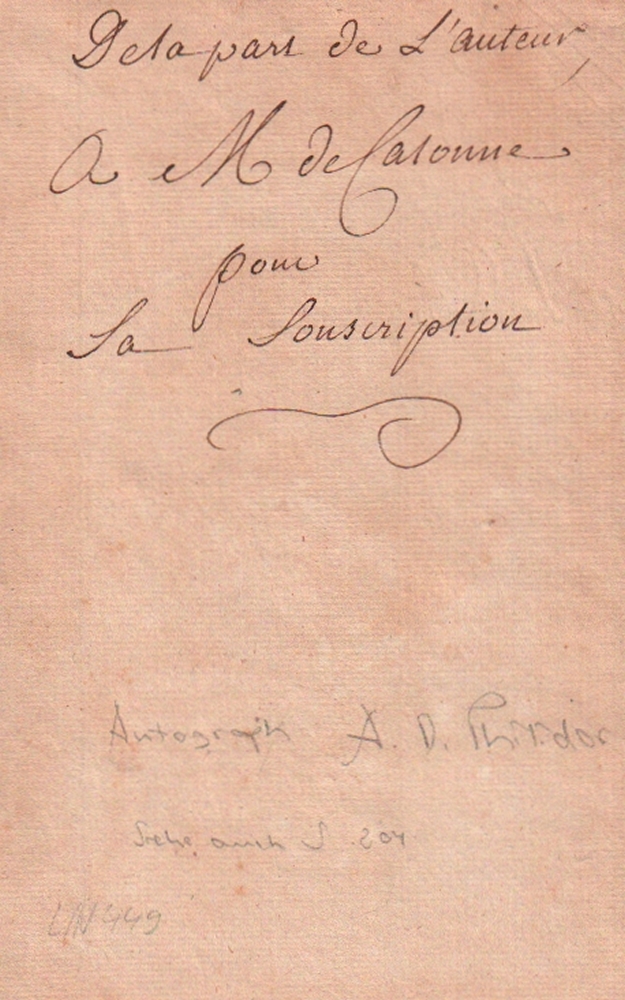 De la part de L'auteur,
A M de Calonne
pour
Sa Souscription
Autograph A. D. Philidor
Siehe auch S. 204
L/N 449